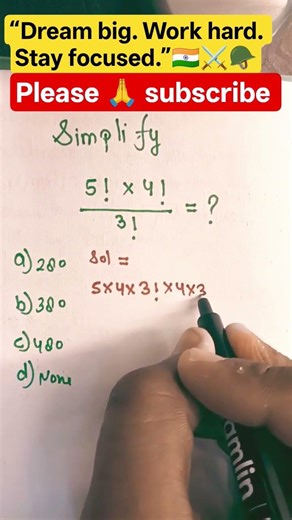 “Dream big. Work hard.
Stay focused.”🇮🇳⚔️🪖
Please 🙏 subscribe
Simplify
5! × 4!
3!
= ?
a) 280
b) 380
c) 480
d) None
Sol =
5×4×3!×4×3
amlin